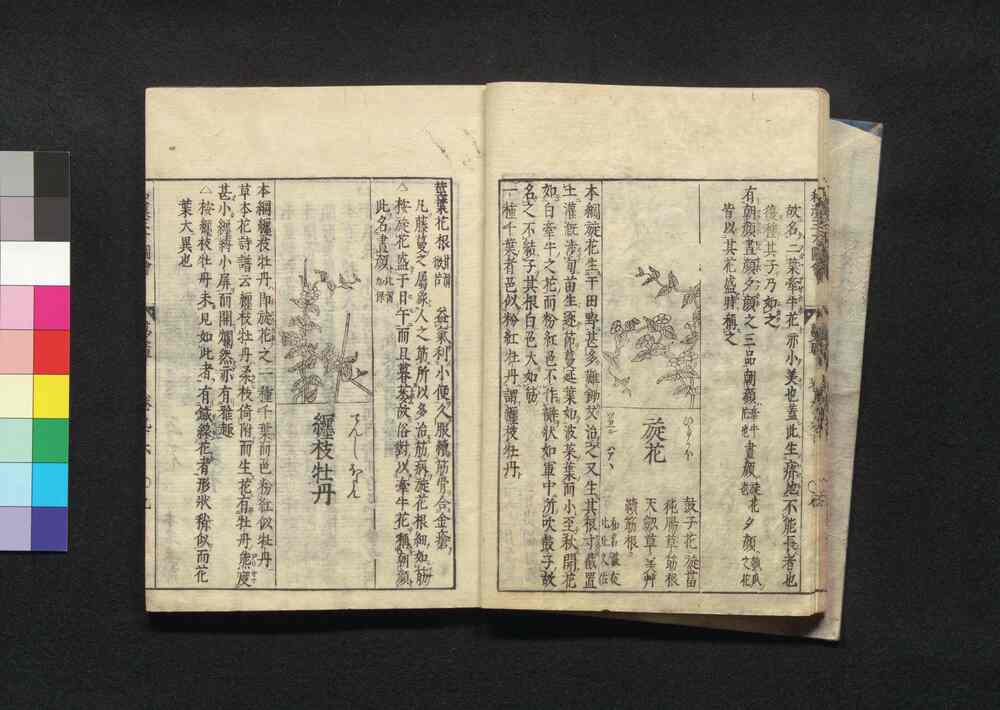 故名二葉牽牛花亦小美也蓋此生瘠地不能長者也
復種其子乃如之
有朝顔晝顔夕顔之三品朝顔牽牛花晝顔旋花夕顔
皆以其花盛時稱之
旋花
鼓子花 旋葍
純腸草 㔟根
天劔草 美艸
續筋根
本綱旋花生于田野甚多難鋤艾治之又生其根寸截置
土灌漑涉旬苗生逐節蔓延葉如波菜葉而小至秋開花
如白牽牛之花而粉紅色不作瓣狀如軍中所吹鼓子故
名之不結子其根白色大如筋
一種千葉者色似粉紅牡丹謂纏枝牡丹
莖葉花根 益氣利小便久服續筋骨合金瘡
凡藤蔓之屬象人之筋所以多治筋病旋花根細如筋
△按旋花盛于日午而且暮萎故俗對以牽牛花稱朝顔
此名晝顔
纏枝牡丹
本綱纏枝牡丹即旋花之一種千葉而色粉紅似牡丹
草本花詩譜云纏枝牡丹柔枝倚附而生花有牡丹態度
甚小纏縛小屏而開爛然亦有雅趣
△按纏枝牡丹未見如此者有鐵線花者形狀稍似而花
葉大異也